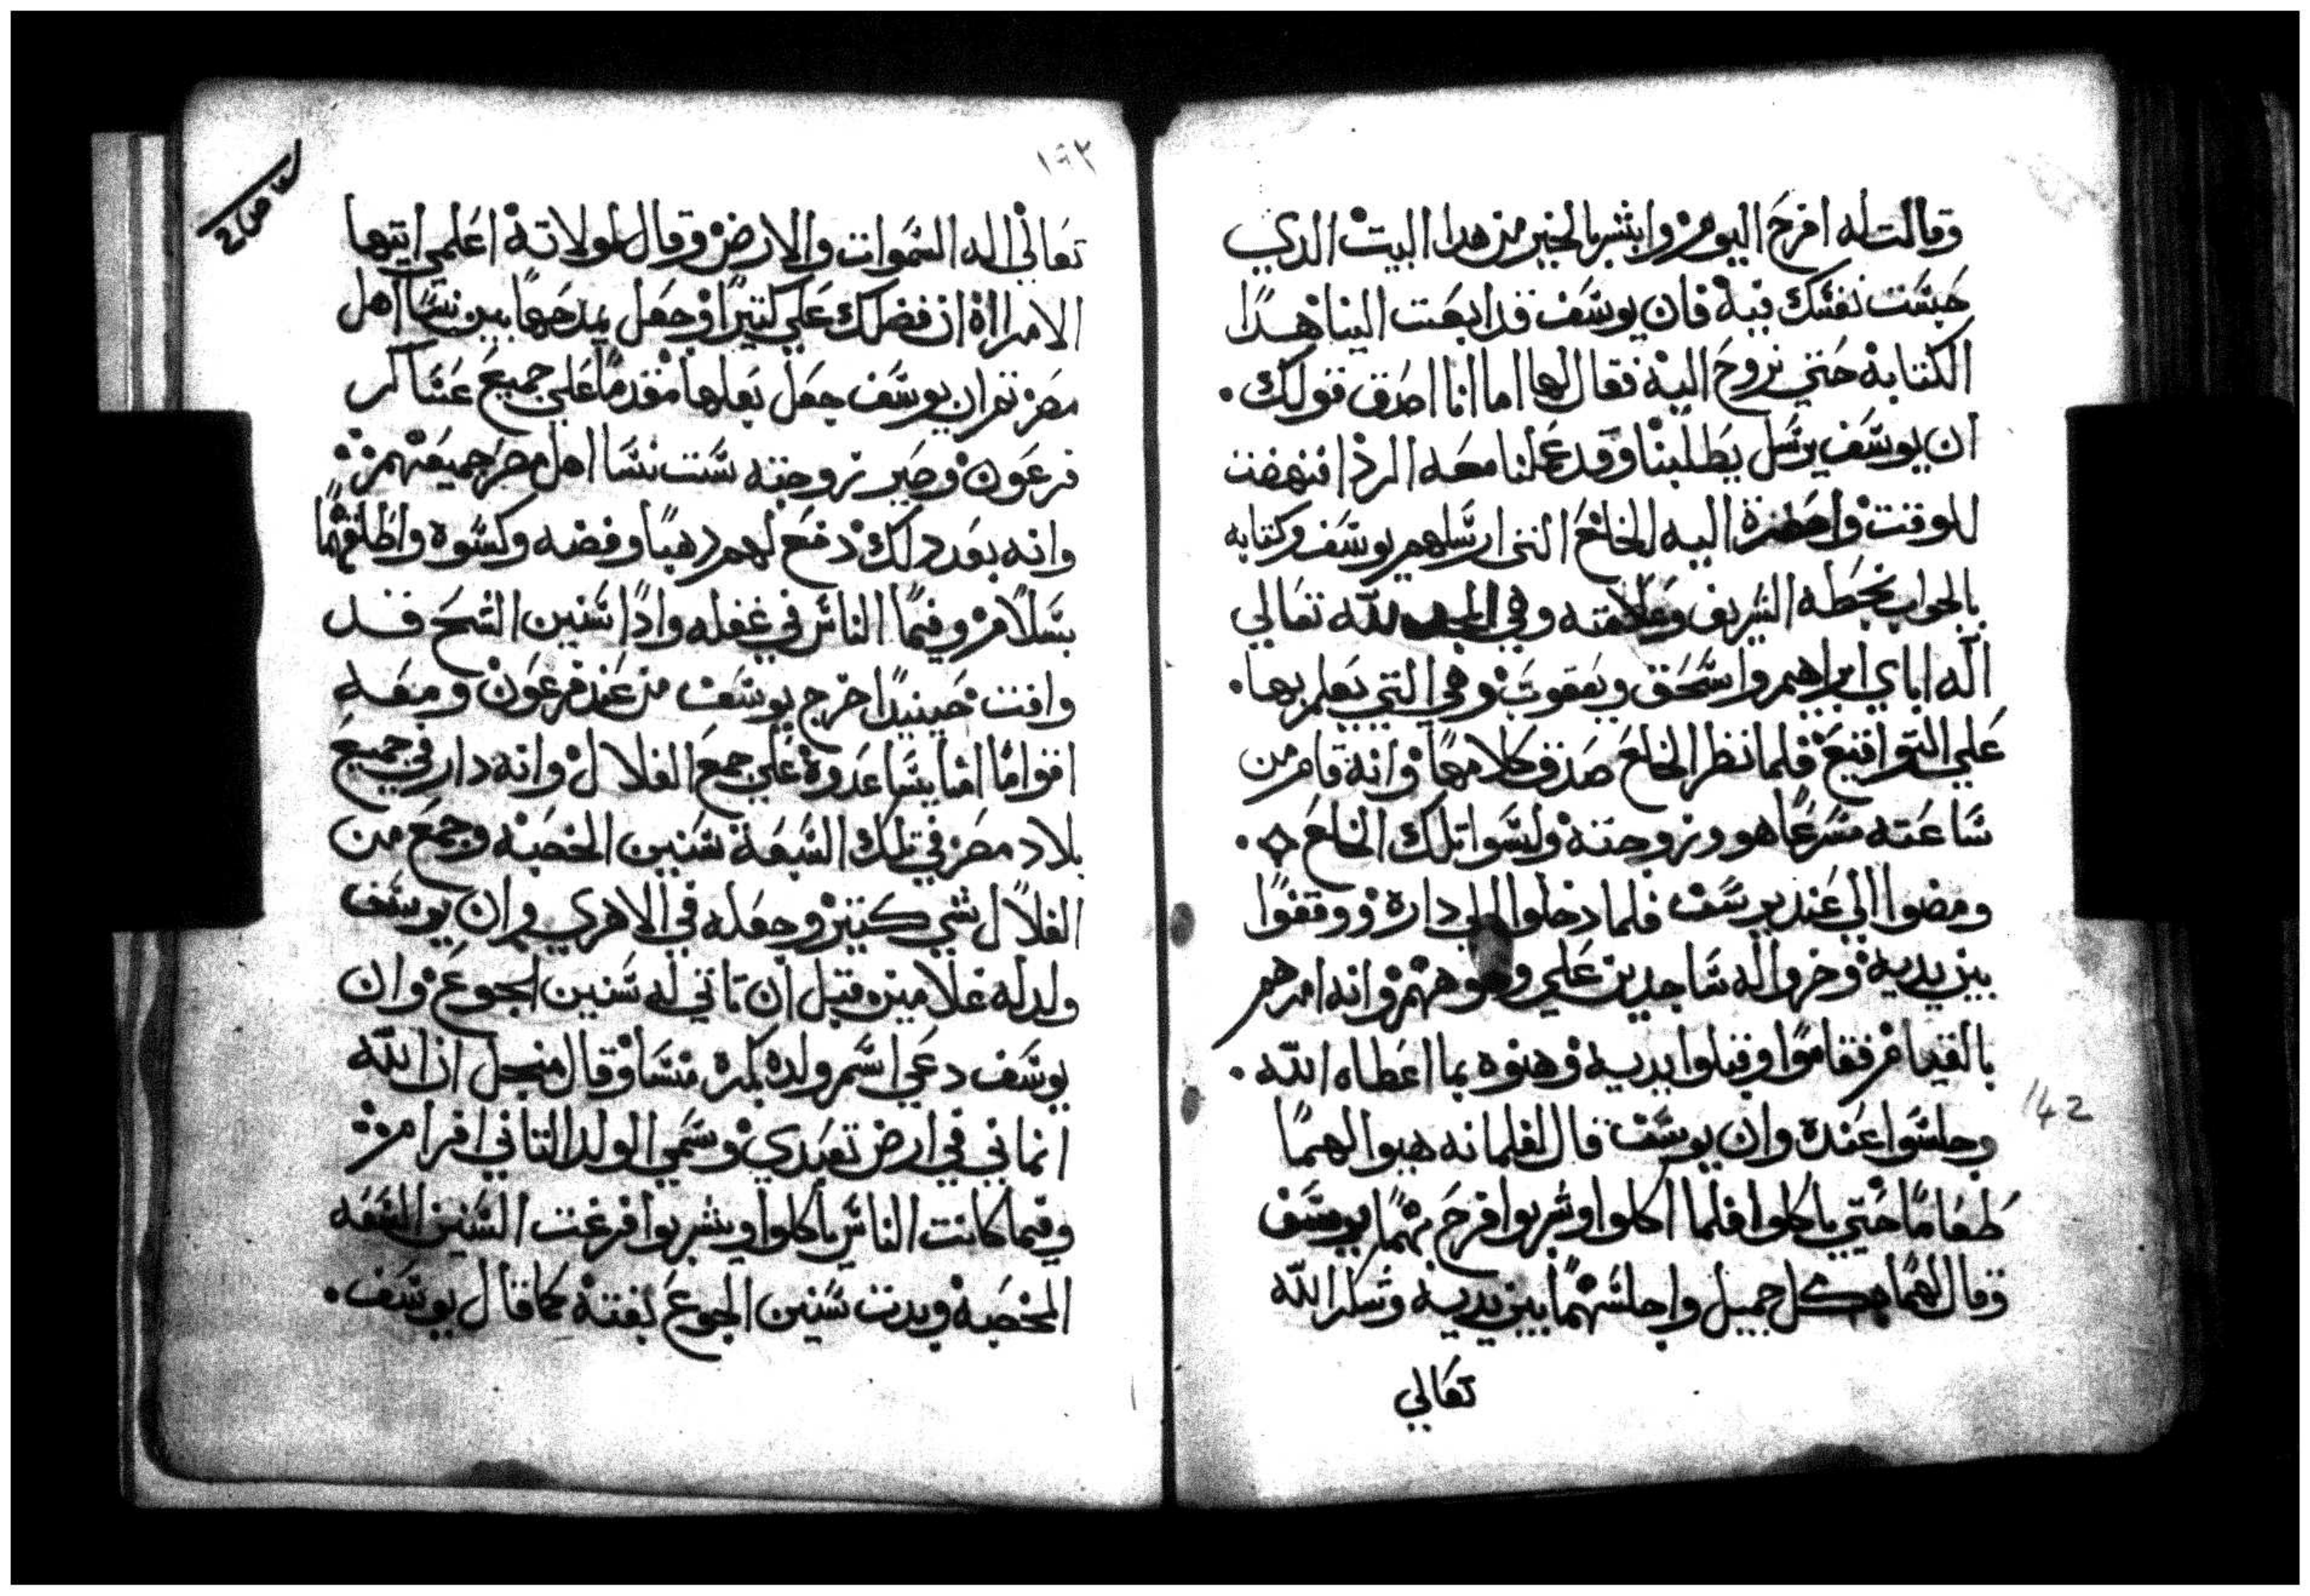 وقالت له افرح اليوم وابشر بالخير من هدا البيت الدي
حبست نفسك فيه فان يوسف قد ابعت الينا هدا
الكتابه حتي نروح اليه فقال لها اما انا اصدق قولك
ان يوسف يرسل يطلبنا وقد عملنا معه الرد افنهضت
للوقت واحضرة اليه الخلع التي ارسلهم يوسف وكتابه
بالجواب بخطه الشريف وعلامته وهي المجد لله تعالي
اله اباي ابراهيم واسحق ويعقوب وهي التي يعلم بها
علي التواقيع فلما نظر الخلع صدق كلامها وانه قام من
ساعته مسرعا هو وزوجته ولبسوا تلك الخلع
ومضوا الي عند يوسف فلما دخلوا الي داره ووقفوا
بين يديه وخروا له ساجدين علي وجوههم وانه امرهم
بالقيام فقاموا وقبلوا يديه وهنوه بما اعطاه الله
وجلسوا عنده وان يوسف قال لغلمانه هيوا لهما
طعاما حتي ياكلوا فلما اكلوا وشربوا فرح بهما يوسف
وقال لهما بكل جميل واجلسهما بين يديه وشكر الله
تعالي
١٩٢
تعالي اله السموات والارض وقال لمولاته اعلمي ايتها
الامراة ان فضلك علي كتيرا وجعل يمدحها بين نسا اهل
مصر تم ان يوسف جعل بعلها مقدما علي جميع عساكر
فرعون وصير زوجته ست نسا اهل مصر جميعهم
وانه بعد دلك دفع لهم دهبا وفضه وكسوه واطلقهما
بسلام وفيما الناس في غفله واذا سنين الشبع قد
وافت حينيدا خرج يوسف من عند فرعون ومعه
اقواما امنا يساعدوه علي جمع الغلال وانه دار في جميع
بلاد مصر في تلك السبعة سنين الخصبه وجمع من
الغلال شي كتير وجعله في الاهري وان يوسف
ولد له غلامين قبل ان تاتي له سنين الجوع وان
يوسف دعي اسم ولده بكره منسا وقال من اجل ان الله
انماني في ارض تعبدي وسمي الولد التاني افرام
وفيما كانت الناس ياكلوا ويشربوا فرغت السنين السبعه
المخصبه وبدت سنين الجوع بغتة كما قال يوسف
142